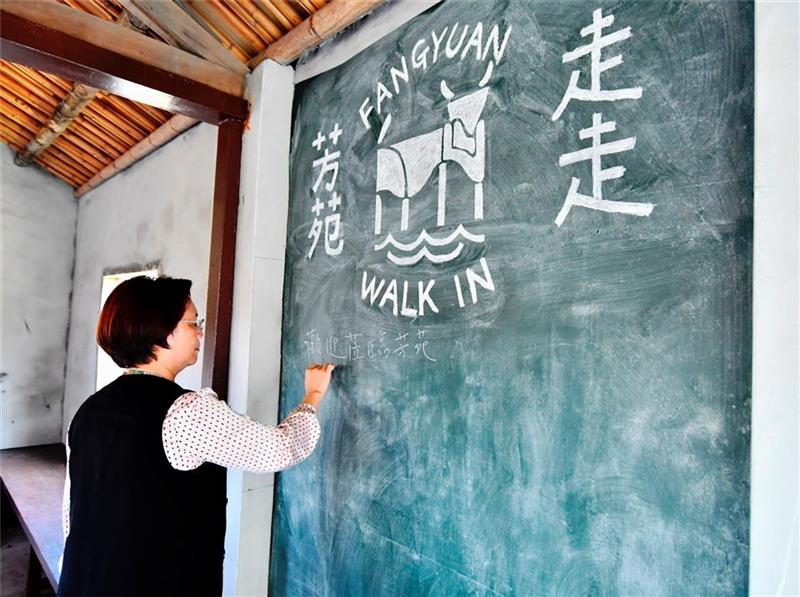 FANGYUAN
芳苑
走走
WALK IN
歡迎蒞臨芳苑